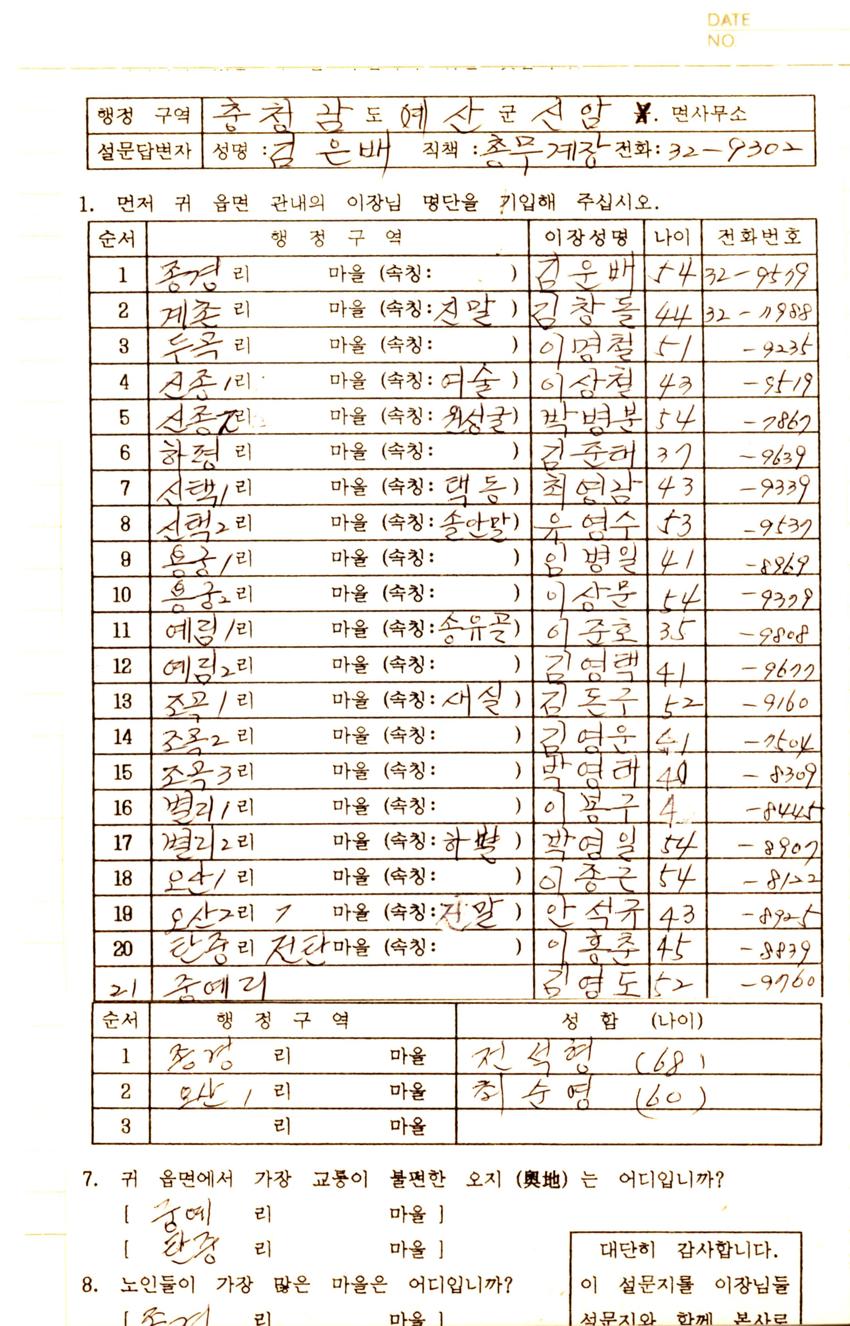 DATE
NO.
행정 구역 충청남도 예산군 신암 면사무소
설문답변자 성명 : 김은배 직책 : 총무계장 전화: 32-9302
1. 먼저 귀 읍면 관내의 이장님 명단을 기입해 주십시오.
순서 행 정 구 역 이장성명 나이 전화번호
1 종경 리 마을 (속칭: ) 김운배 54 32-9579
2 계촌 리 마을 (속칭: 건말 ) 김창돌 44 32-
3 두곡 리 마을 (속칭: ) 이명철 51 -9235
4 신종1리 마을 (속칭: 여술 ) 이상철 43 -9519
5 신종2리 마을 (속칭: ) 박병분 54 -7867
6 하평 리 마을 (속칭: ) 김준태 37 -9639
7 신택1리 마을 (속칭: 택동 ) 최영람 43 -9339
8 신택2리 마을 (속칭: 솔안말 ) 유영수 53 -9537
9 용궁1리 마을 (속칭: ) 임병일 41 -8969
10 용궁2리 마을 (속칭: ) 이상문 54 -9379
11 예림1리 마을 (속칭: 송유골) 이준호 35 -9808
12 예림2리 마을 (속칭: ) 김영택 41 -9677
13 조곡1리 마을 (속칭: 새실 ) 김돈구 52 -9160
14 조곡2리 마을 (속칭: ) 김영운 -7504
15 조곡3리 마을 (속칭: ) 박영태 40 -8309
16 별리1리 마을 (속칭: ) 이용구 -8445
17 별리2리 마을 (속칭: ) 박영일 54 -8907
18 오산1리 마을 (속칭: ) 이종근 54 -8122
19 오산2리 마을 (속칭: 건말 ) 안석규 43 -8925
20 탄중 리 전탄마을 (속칭: ) 이흥춘 45 -8839
21 중예리 김영도 52 -9760
순서 행 정 구 역 성 함 (나이)
1 종경 리 마을 전석형 (68)
2 오산1 리 마을 최순영 (60)
3 리 마을
7. 귀 읍면에서 가장 교통이 불편한 오지 (奧地) 는 어디입니까?
[ 중예 리 마을 ]
[ 탄중 리 마을 ]
8. 노인들이 가장 많은 마을은 어디입니까?
[ 종경 리 마을 ]
대단히 감사합니다.
이 설문지를 이장님들
설문지와 함께 본사로